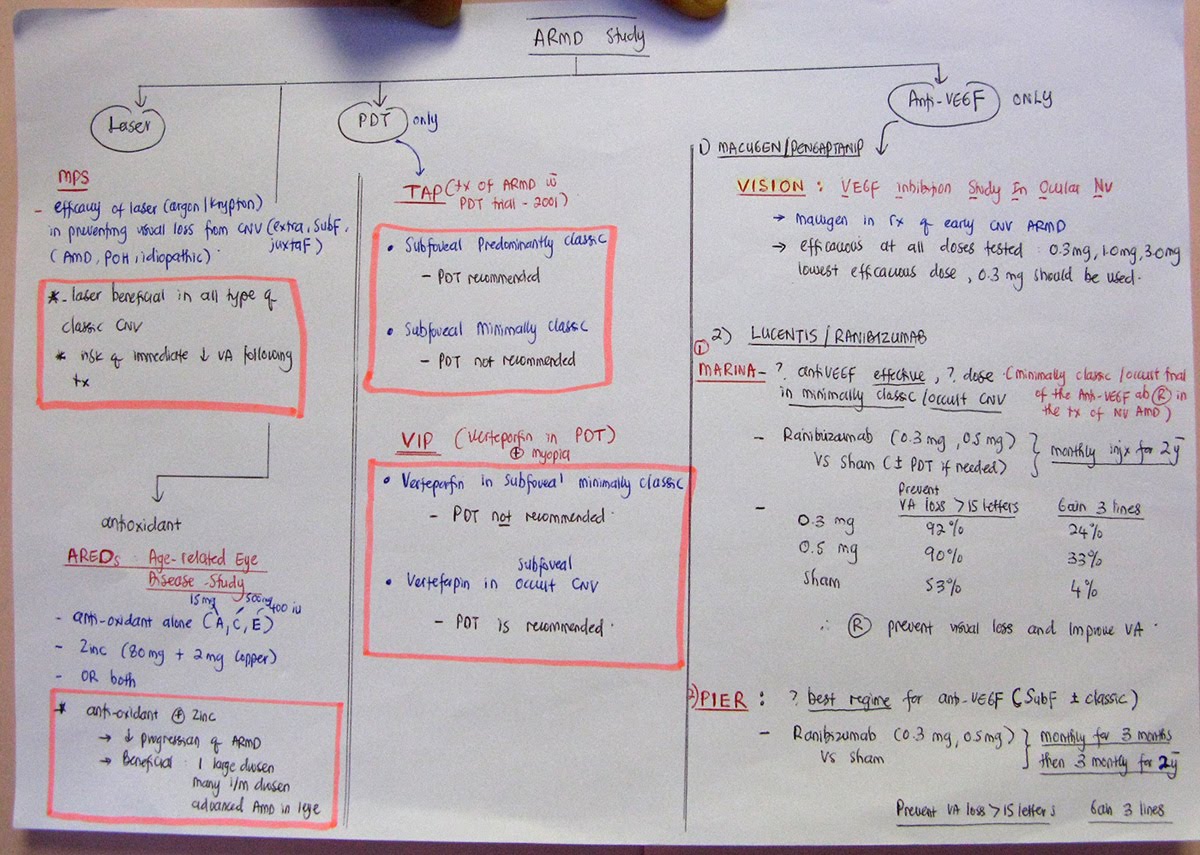 ARMD Study
Laser
PDT only
Anti-VEGF ONLY
MPS
- efficacy of laser (argon/krypton)
in preventing visual loss from CNV (extra, subF,
juxtaF)
(AMD, POH, idiopathic).
* - laser beneficial in all type of
classic CNV
* risk of immediate ↓ VA following
tx
antioxidant
AREDs : Age-related Eye
Disease Study
15mg 500mg 400 iu
- anti-oxidant alone (A, C, E)
- Zinc (80mg + 2mg copper)
- OR both
* anti-oxidant ⊕ Zinc
→ ↓ progression of ARMD
→ Beneficial : 1 large drusen
many i/m drusen
advanced AMD in 1eye
TAP (tx of ARMD w̄
PDT trial - 2001)
• Subfoveal Predominantly classic
- PDT recommended
• Subfoveal minimally classic
- PDT not recommended
VIP (Verteporfin in PDT)
⊕ myopia
• Verteporfin in subfoveal minimally classic
- PDT not recommended.
subfoveal
• Vertefapin in occult CNV
- PDT is recommended.
1) MACUGEN/PENGAPTANIP
VISION : VEGF Inhibition Study In Ocular NV
→ macugen in rx of early CNV ARMD
→ efficacious at all doses tested : 0.3mg, 1.0mg, 3.0mg
lowest efficacious dose, 0.3 mg should be used.
2) LUCENTIS / RANIBIZUMAB
①
MARINA - ? antiVEGF effective, ? dose. (minimally classic/occult trial
in minimally classic/occult CNV of the Anti-VEGF ab Ⓡ in
the tx of NV AMD)
- Ranibizumab (0.3 mg, 0.5 mg) } monthly injx for 2y̅
VS sham (± PDT if needed)
Prevent
- VA loss >15 letters Gain 3 lines
0.3 mg 92% 24%
0.5 mg 90% 33%
sham 53% 4%
∴ Ⓡ prevent visual loss and improve VA.
2) PIER : ? best regime for anti-VEGF (SubF ± classic)
- Ranibizumab (0.3 mg, 0.5mg) } monthly for 3 months
VS sham then 3 montly for 2y̅
Prevent VA loss >15 letters Gain 3 lines